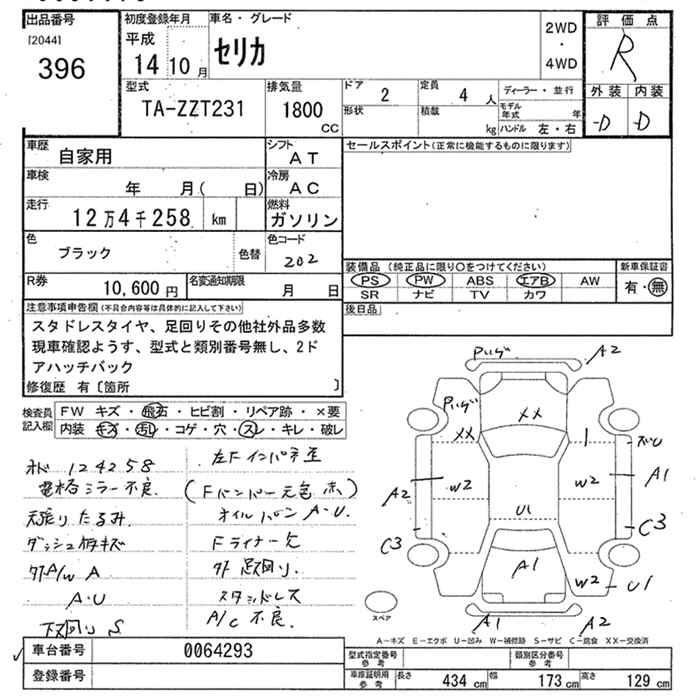 出品番号
[2044]
396
初度登録年月
平成
14年10月
車名・グレード
セリカ
2WD
・
4WD
評価点
R
外装 内装
D D
型式
TA-ZZT231
排気量
1800
CC
ドア
2
定員
4 人
形状
積載
kg
ディーラー・並行
モデル年式 年
ハンドル 左・右
車歴
自家用
シフト
AT
車検
年 月( 日)
冷房
AC
走行
12万4千258 km
燃料
ガソリン
色
ブラック
色替
色コード
202
R券
10,600円
名変通知期限
月 日
セールスポイント(正常に機能するものに限ります)
装備品 (純正品に限り○をつけてください)
PS PW ABS エアB AW
SR ナビ TV カワ
新車保証書
有・無
後日品
注意事項申告欄(不具合内容等は具体的に記入して下さい)
スタドレスタイヤ、足回りその他社外品多数
現車確認ようす、型式と類別番号無し、2ド
アハッチバック
修復歴 有〔箇所 〕
検査員記入欄
FW キズ・飛石・ヒビ割・リペア跡・×要
内装 キズ・汚レ・コゲ・穴・スレ・キレ・破レ
メド 124258
電格ミラー不良
天張りたるみ
ダッシュ割キズ
外A/W A
A・U
下回りS
左Fインパネ歪
(Fバンパー元色 赤)
オイルパン A・U.
Fライナー欠
外 足回り.
スタッドレス
A/C 不良.
Pいげ
A2
Pいげ
XX
XX
W2
W2
A2
A1
C3
C3
U1
A1
W2
U1
A1
A2
スペア
A-キズ E-エクボ U-凹み W-補修跡 S-サビ C-腐食 XX-交換済
車台番号
0064293
登録番号
型式指定番号
参考
類別区分番号
参考
車庫証明用
参考
長さ 434 cm
幅 173 cm
高さ 129 cm